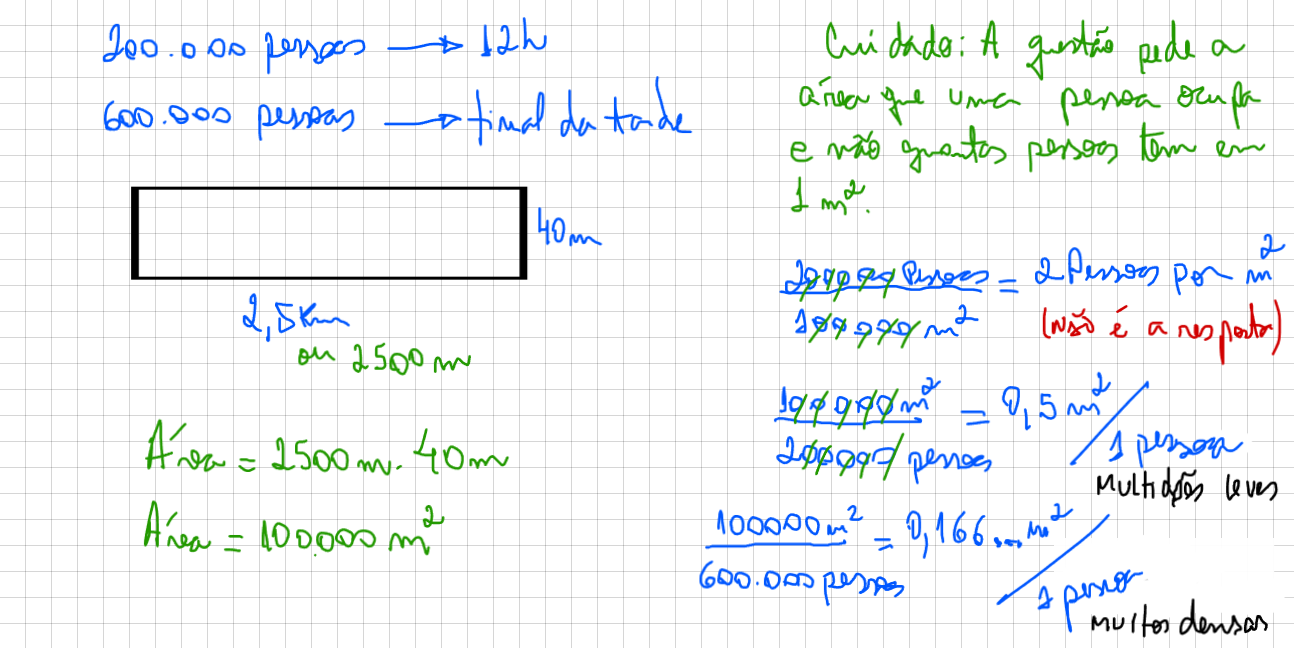 200.000 pessoas → 12h
600.000 pessoas → final da tarde
40m
2,5Km
ou 2500 m
Área = 2500 m. 40m
Área = 100.000 m²
Cuidado: A questão pede a
área que uma pessoa ocupa
e não quantas pessoas tem em
1 m².
200000 Pessoas = 2 Pessoas por m²
100000 m²
(Não é a resposta)
100000 m² = 0,5 m²
200000 pessoas
/ 1 pessoa
Multidões leves
100000 m² = 0,166... m²
600.000 pessoas
/ 1 pessoa
muitos densas